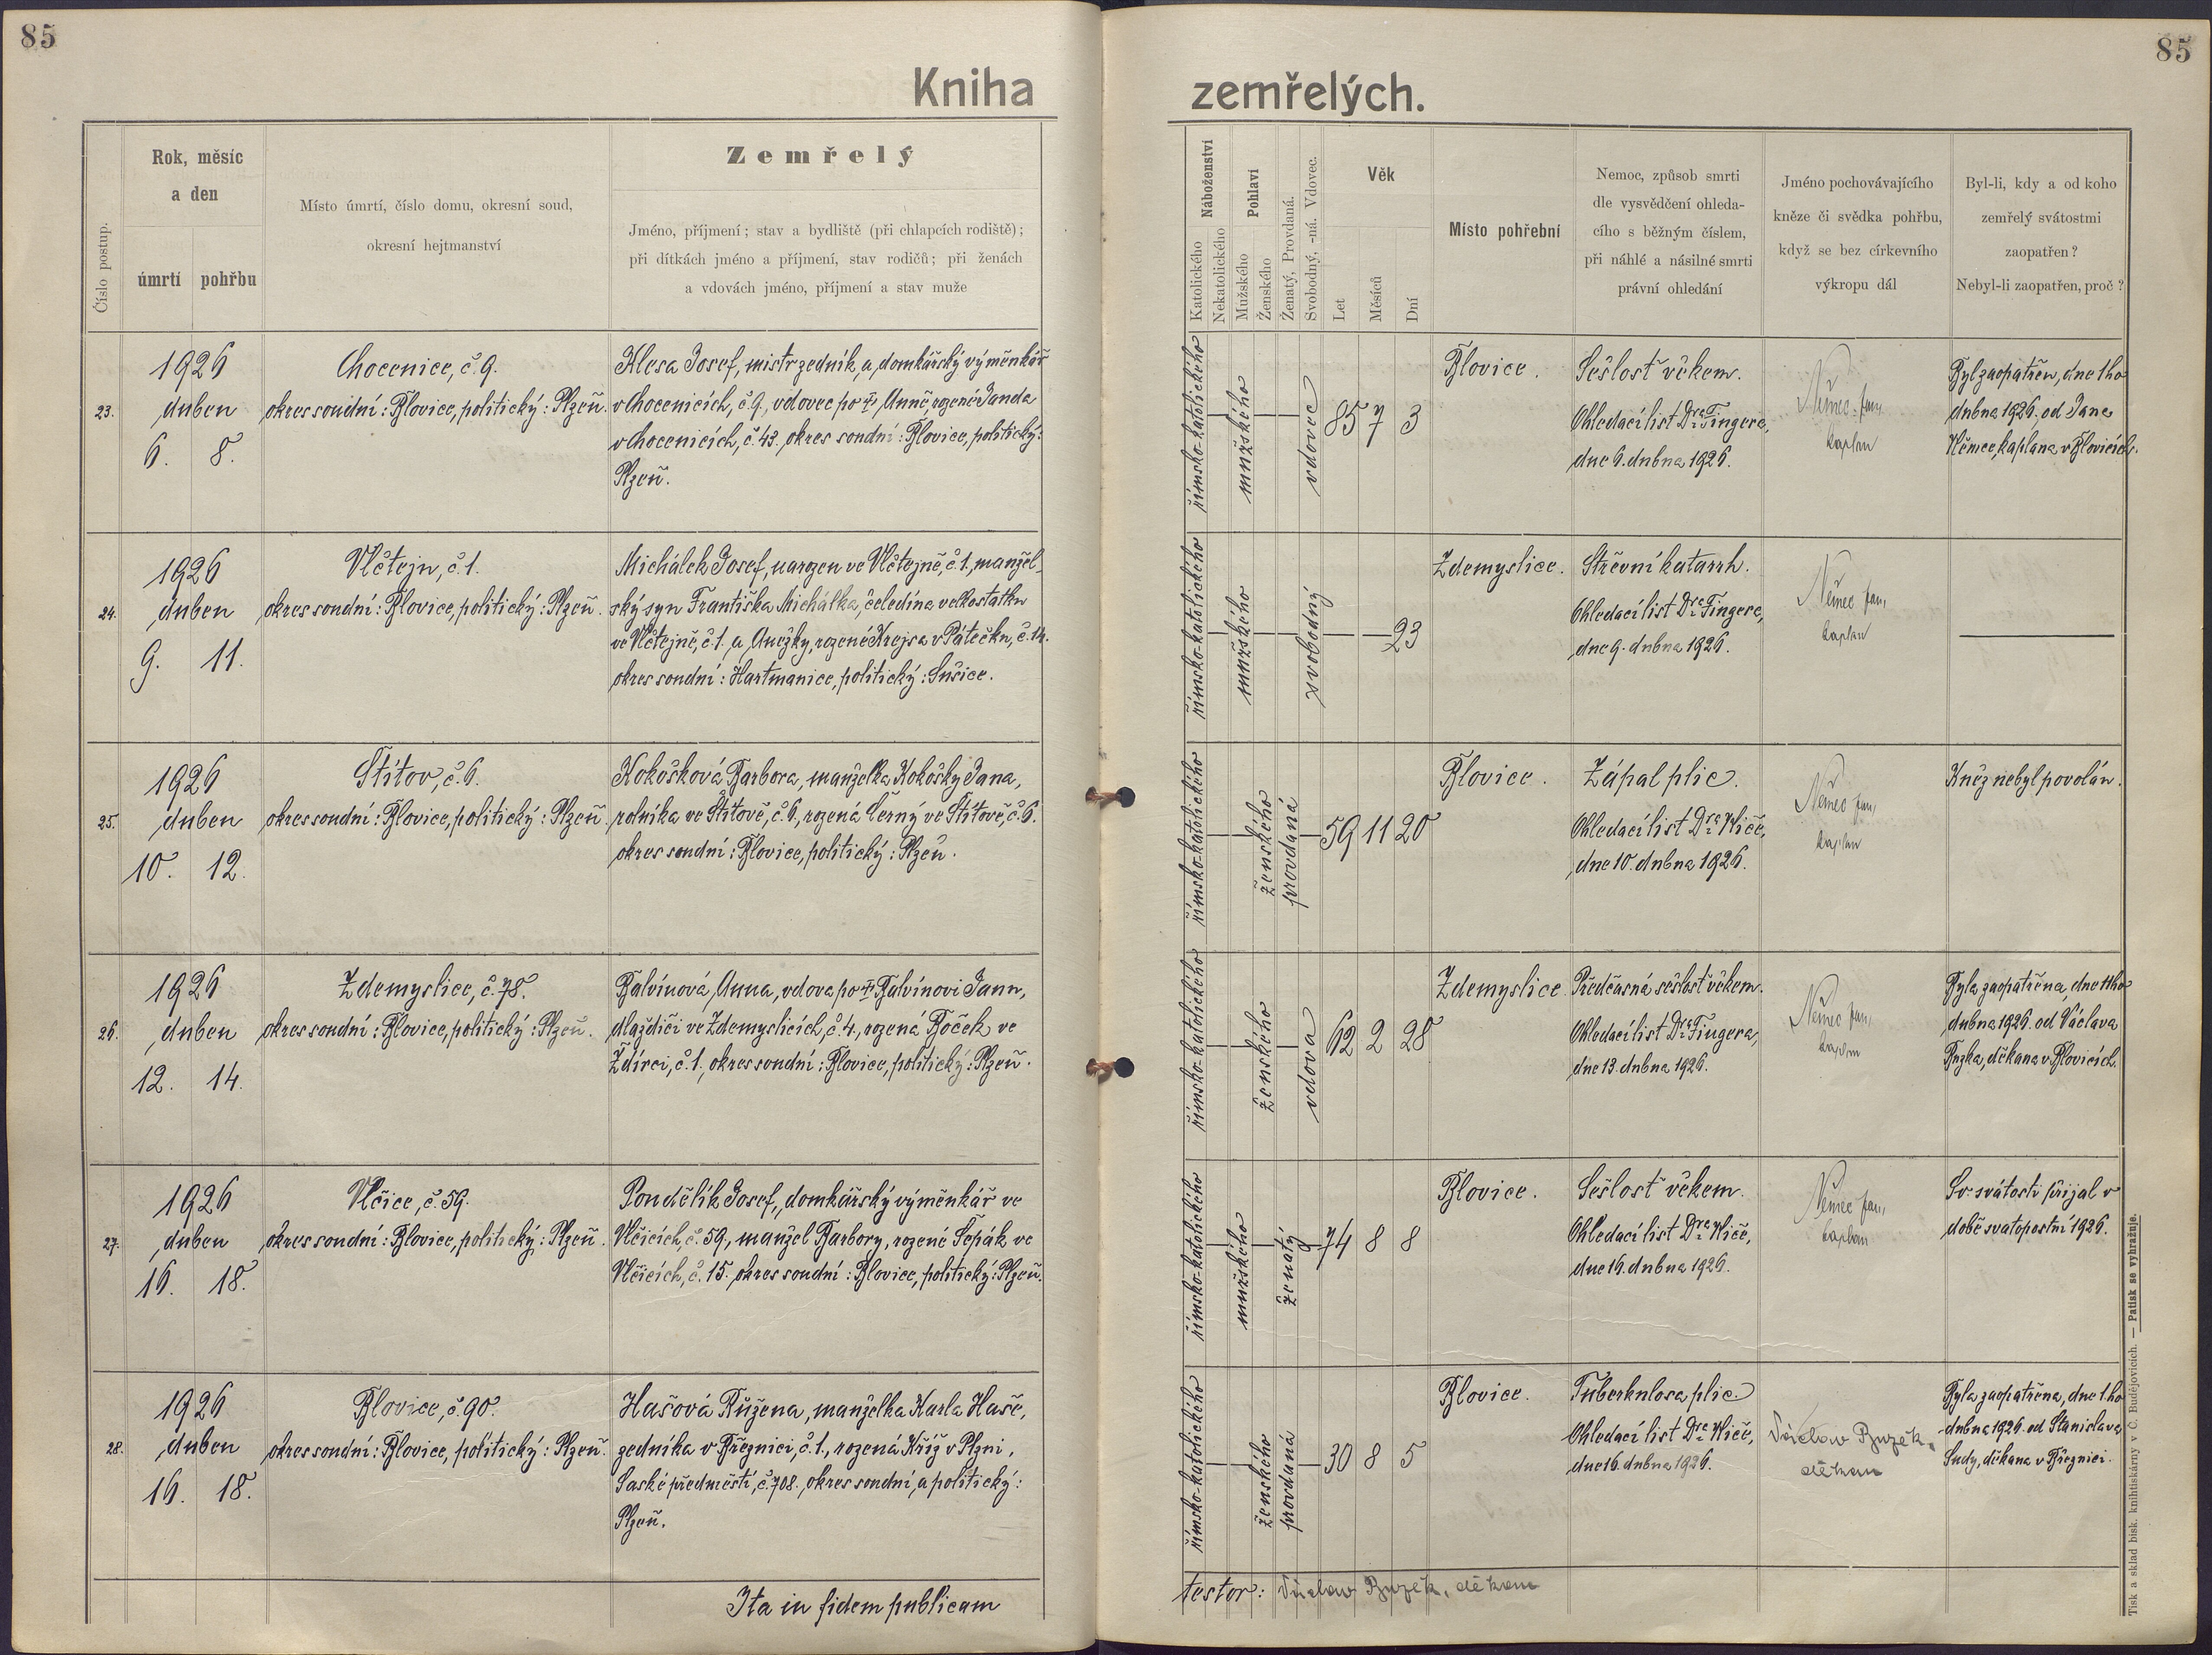 85
85
Kniha zemřelých.
Číslo postup.
Rok, měsíc
a den
úmrtí pohřbu
Místo úmrtí, číslo domu, okresní soud,
okresní hejtmanství
Zemřelý
Jméno, příjmení; stav a bydliště (při chlapcích rodiště);
při dítkách jméno a příjmení, stav rodičů; při ženách
a vdovách jméno, příjmení a stav muže
Náboženství
Katolického
Nekatolického
Pohlaví
Mužského
Ženského
Ženatý, Provdaná.
Svobodný, -ná. Vdovec.
Věk
Let
Měsíců
Dní
Místo pohřební
Nemoc, způsob smrti
dle vysvědčení ohleda-
cího s běžným číslem,
při náhlé a násilné smrti
právní ohledání
Jméno pochovávajícího
kněze či svědka pohřbu,
když se bez církevního
výkropu dál
Byl-li, kdy a od koho
zemřelý svátostmi
zaopatřen?
Nebyl-li zaopatřen, proč?
23.
1926
duben
6. 8.
Chocenice, č. 9.
okres soudní: Blovice, politický: Plzeň.
Klesa Josef, mistr zedník, a domkářský výměnkář
v Chocenicích, č. 9., vdovec po † Anně, rozené Janda
v Chocenicích, č. 43., okres soudní: Blovice, politický:
Plzeň.
římsko-katolického
mužského
vdovec
85 7 3
Blovice.
Sešlosť věkem.
Ohledací list Dra Fingera,
dne 6. dubna 1926.
Němec Jan,
kaplan
Byl zaopatřen, dne 1ho
dubna 1926. od Jana
Němce, kaplana v Blovicích.
24.
1926
duben
9. 11.
Vlčtejn, č. 1.
okres soudní: Blovice, politický: Plzeň.
Michálek Josef, narozen ve Vlčtejně, č. 1., manžel-
ský syn Františka Michálka, čeledína velkostatku
ve Vlčtejně, č. 1. a Anežky, rozené Krejsa v Pátečku, č. 14.
okres soudní: Hartmanice, politický: Sušice.
římsko-katolického
mužského
svobodný
23
Zdemyslice.
Střevní katarrh.
Ohledací list Dra Fingera,
dne 9. dubna 1926.
Němec Jan,
kaplan
25.
1926
duben
10. 12.
Štítov, č. 6.
okres soudní: Blovice, politický: Plzeň.
Kokošková Barbora, manželka Kokošky Jana,
rolníka ve Štítově, č. 6., rozená Černý ve Štítově, č. 6.
okres soudní: Blovice, politický: Plzeň.
římsko-katolického
ženského
provdaná
59 11 20
Blovice.
Zápal plic.
Ohledací list Dra Kliče,
dne 10. dubna 1926.
Němec Jan,
kaplan
Kněz nebyl povolán.
26.
1926
duben
12. 14.
Zdemyslice, č. 78.
okres soudní: Blovice, politický: Plzeň.
Balvínová Anna, vdova po † Balvínovi Janu,
dlaždiči ve Zdemyslicích, č. 4, rozená Boček ve
Ždírci, č. 1., okres soudní: Blovice, politický: Plzeň.
římsko-katolického
ženského
vdova
62 2 28
Zdemyslice
Předčasná sešlosť věkem.
Ohledací list Dra Fingera,
dne 13. dubna 1926.
Němec Jan,
kaplan
Byla zaopatřena, dne 11ho
dubna 1926. od Václava
Buzka, děkana v Blovicích.
27.
1926
duben
16. 18.
Vlčice, č. 59.
okres soudní: Blovice, politický: Plzeň.
Pondělík Josef, domkářský výměnkář ve
Vlčicích, č. 59., manžel Barbory, rozené Šepák ve
Vlčicích, č. 15. okres soudní: Blovice, politický: Plzeň.
římsko-katolického
mužského
ženatý
74 8 8
Blovice.
Sešlosť věkem.
Ohledací list Dra Kliče,
dne 16. dubna 1926.
Němec Jan,
kaplan
Sv. svátosti přijal v
době svatopostní 1926.
28.
1926
duben
16. 18.
Blovice, č. 90.
okres soudní: Blovice, politický: Plzeň.
Hašová Růžena, manželka Karla Haše,
zedníka v Březnici, č. 1., rozená Kříž v Plzni,
Saské předměstí, č. 708. okres soudní, a politický:
Plzeň.
římsko-katolického
ženského
provdaná
30 8 5
Blovice.
Tuberkulosa plic.
Ohledací list Dra Kliče,
dne 16. dubna 1926.
Václav Buzek,
děkan
Byla zaopatřena, dne 1ho
dubna 1926. od Stanislava
Sudy, děkana v Březnici.
Ita in fidem publicam
testor: Václav Buzek, děkan
Tisk a sklad bisk. knihtiskárny v Č. Budějovicích. — Patisk se vyhražuje.